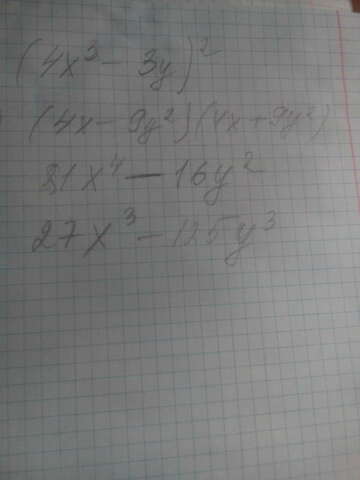 (4x³ - 3y)²
(4x - 9y²)(4x + 9y²)
81x⁴ - 16y²
27x³ - 125y³